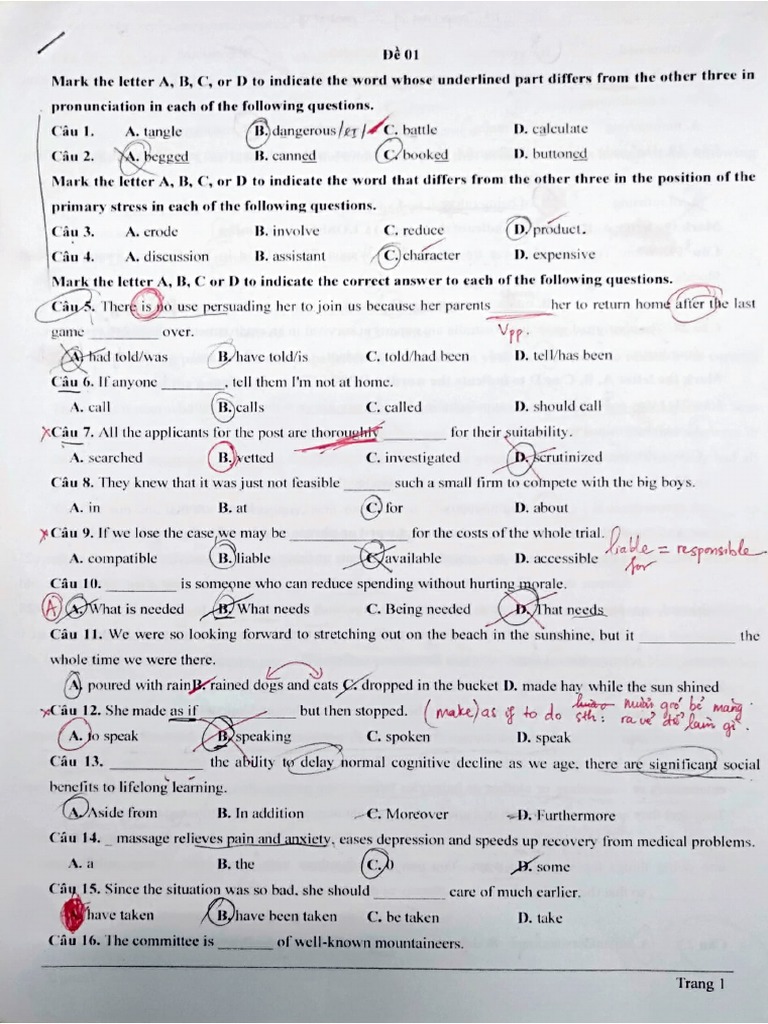 Đề 01
Mark the letter A, B, C, or D to indicate the word whose underlined part differs from the other three in
pronunciation in each of the following questions.
Câu 1. A. tangle B. dangerous /eɪ/ C. battle D. calculate
Câu 2. A. begged B. canned C. booked D. buttoned
Mark the letter A, B, C, or D to indicate the word that differs from the other three in the position of the
primary stress in each of the following questions.
Câu 3. A. erode B. involve C. reduce D. product.
Câu 4. A. discussion B. assistant C. character D. expensive
Mark the letter A, B, C or D to indicate the correct answer to each of the following questions.
Câu 5. There is no use persuading her to join us because her parents ________ her to return home after the last
Vpp.
game _________ over.
A. had told/was B. have told/is C. told/had been D. tell/has been
Câu 6. If anyone ________, tell them I'm not at home.
A. call B. calls C. called D. should call
Câu 7. All the applicants for the post are thoroughly ________ for their suitability.
A. searched B. vetted C. investigated D. scrutinized
Câu 8. They knew that it was just not feasible ______ such a small firm to compete with the big boys.
A. in B. at C. for D. about
Câu 9. If we lose the case,we may be ______________ for the costs of the whole trial.
liable = responsible
for
A. compatible B. liable C. available D. accessible
Câu 10. _________ is someone who can reduce spending without hurting morale.
A A. What is needed B. What needs C. Being needed D. That needs
Câu 11. We were so looking forward to stretching out on the beach in the sunshine, but it ____________ the
whole time we were there.
A. poured with rain B. rained dogs and cats C. dropped in the bucket D. made hay while the sun shined
Câu 12. She made as if __________ but then stopped. (make) as if to do sth: ra vẻ để làm gì
A. to speak B. speaking C. spoken D. speak
Câu 13. ____________ the ability to delay normal cognitive decline as we age, there are significant social
benefits to lifelong learning.
A. Aside from B. In addition C. Moreover D. Furthermore
Câu 14. _ massage relieves pain and anxiety, eases depression and speeds up recovery from medical problems.
A. a B. the C. 0 D. some
Câu 15. Since the situation was so bad, she should _________ care of much earlier.
A. have taken B. have been taken C. be taken D. take
Câu 16. The committee is _______ of well-known mountaineers.
Trang 1